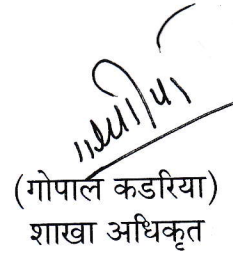 (गोपाल कडरिया)
शाखा अधिकृत